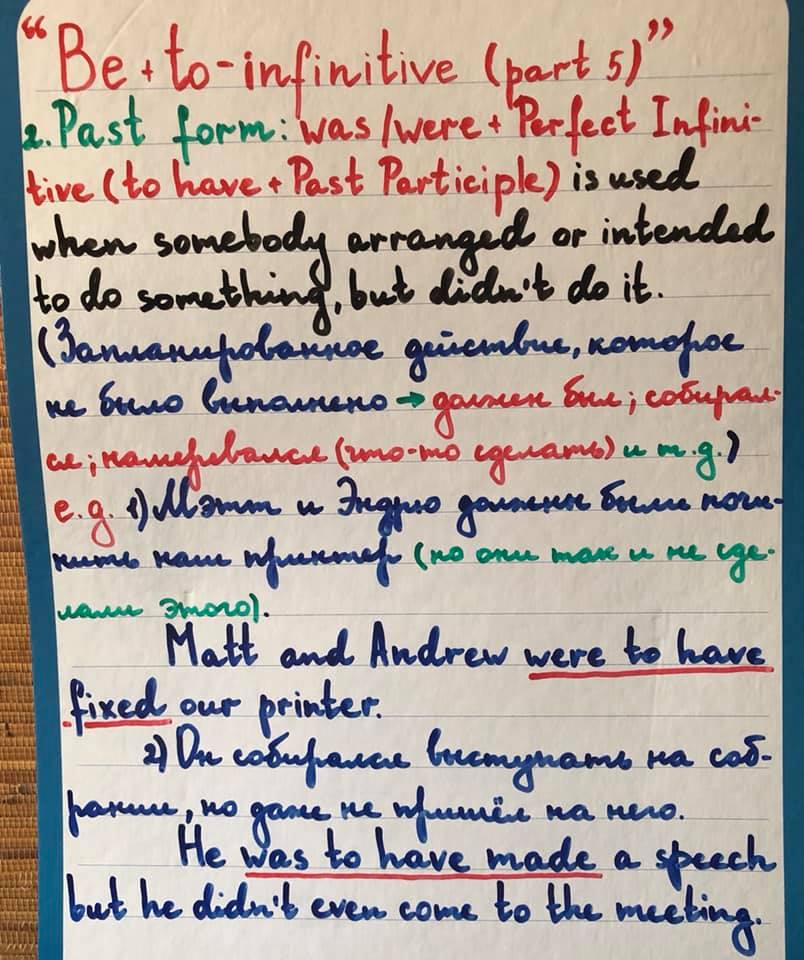 “Be + to-infinitive (part 5)”
2. Past form: was/were + Perfect Infini-
tive (to have + Past Participle) is used
when somebody arranged or intended
to do something, but didn't do it.
(Запланированное действие, которое
не было выполнено → должен был; собирал-
ся; намеревался (что-то сделать) и т.д.)
e.g. 1) Мэтт и Эндрю должны были почи-
нить наш принтер (но они так и не сде-
лали этого).
Matt and Andrew were to have
fixed our printer.
2) Он собирался выступать на соб-
рании, но даже не пришёл на него.
He was to have made a speech
but he didn't even come to the meeting.